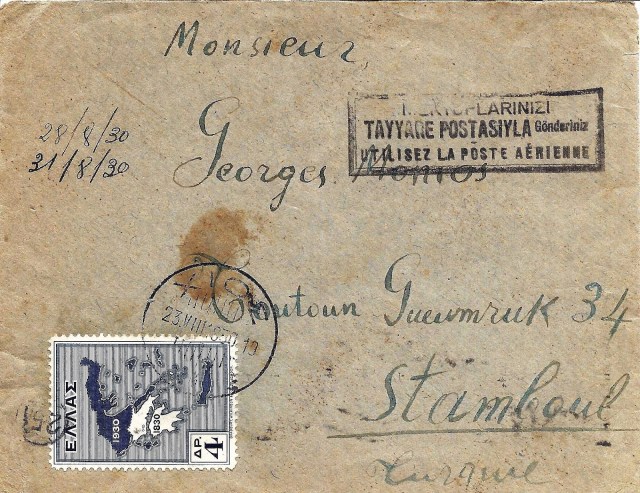 Monsieur,
MEKTUPLARINIZI
TAYYARE POSTASIYLA Gönderiniz
UTILISEZ LA POSTE AÉRIENNE
28/8/30
31/8/30
Georges
Toutoun Gueumruk 34
Stamboul
Turquie
23.VIII
ΕΛΛΑΣ
1930
1830
ΔΡ. 4